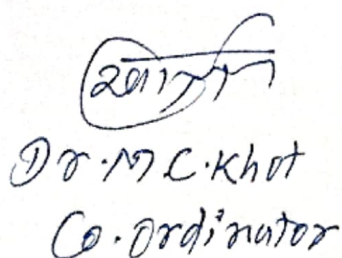 Dr. M C. Khot
Co. Ordinator